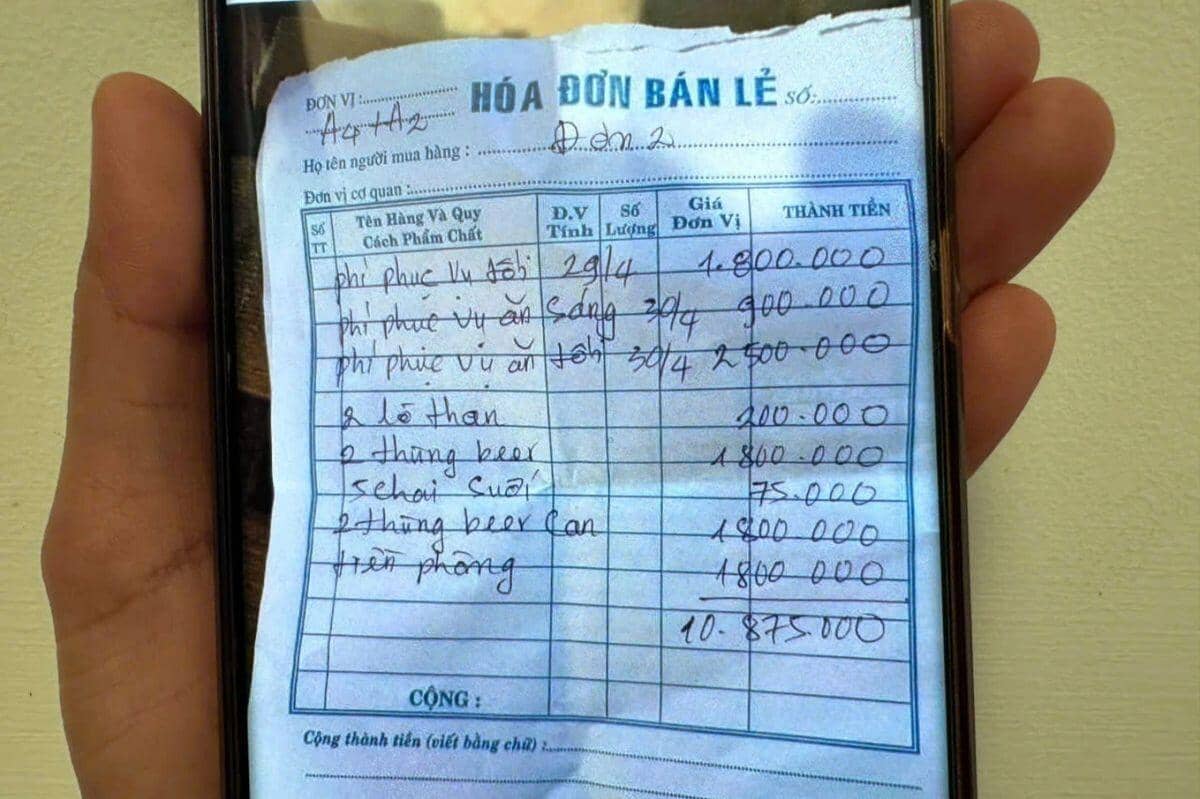 HÓA ĐƠN BÁN LẺ Số:
ĐƠN VỊ :
A4+A2
Họ tên người mua hàng : Đơn 2
Đơn vị cơ quan :
Số TT Tên Hàng Và Quy Cách Phẩm Chất Đ.V Tính Số Lượng Giá Đơn Vị THÀNH TIỀN
phí phục vụ tối 29/4 1.800.000
phí phục vụ ăn sáng 30/4 900.000
phí phục vụ ăn tối 30/4 2500.000
2 lò than 200.000
2 thùng beer 1800.000
5 chai suối 75.000
2 thùng beer can 1800 000
tiền phòng 1800 000
10.875.000
CỘNG :
Cộng thành tiền (viết bằng chữ) :